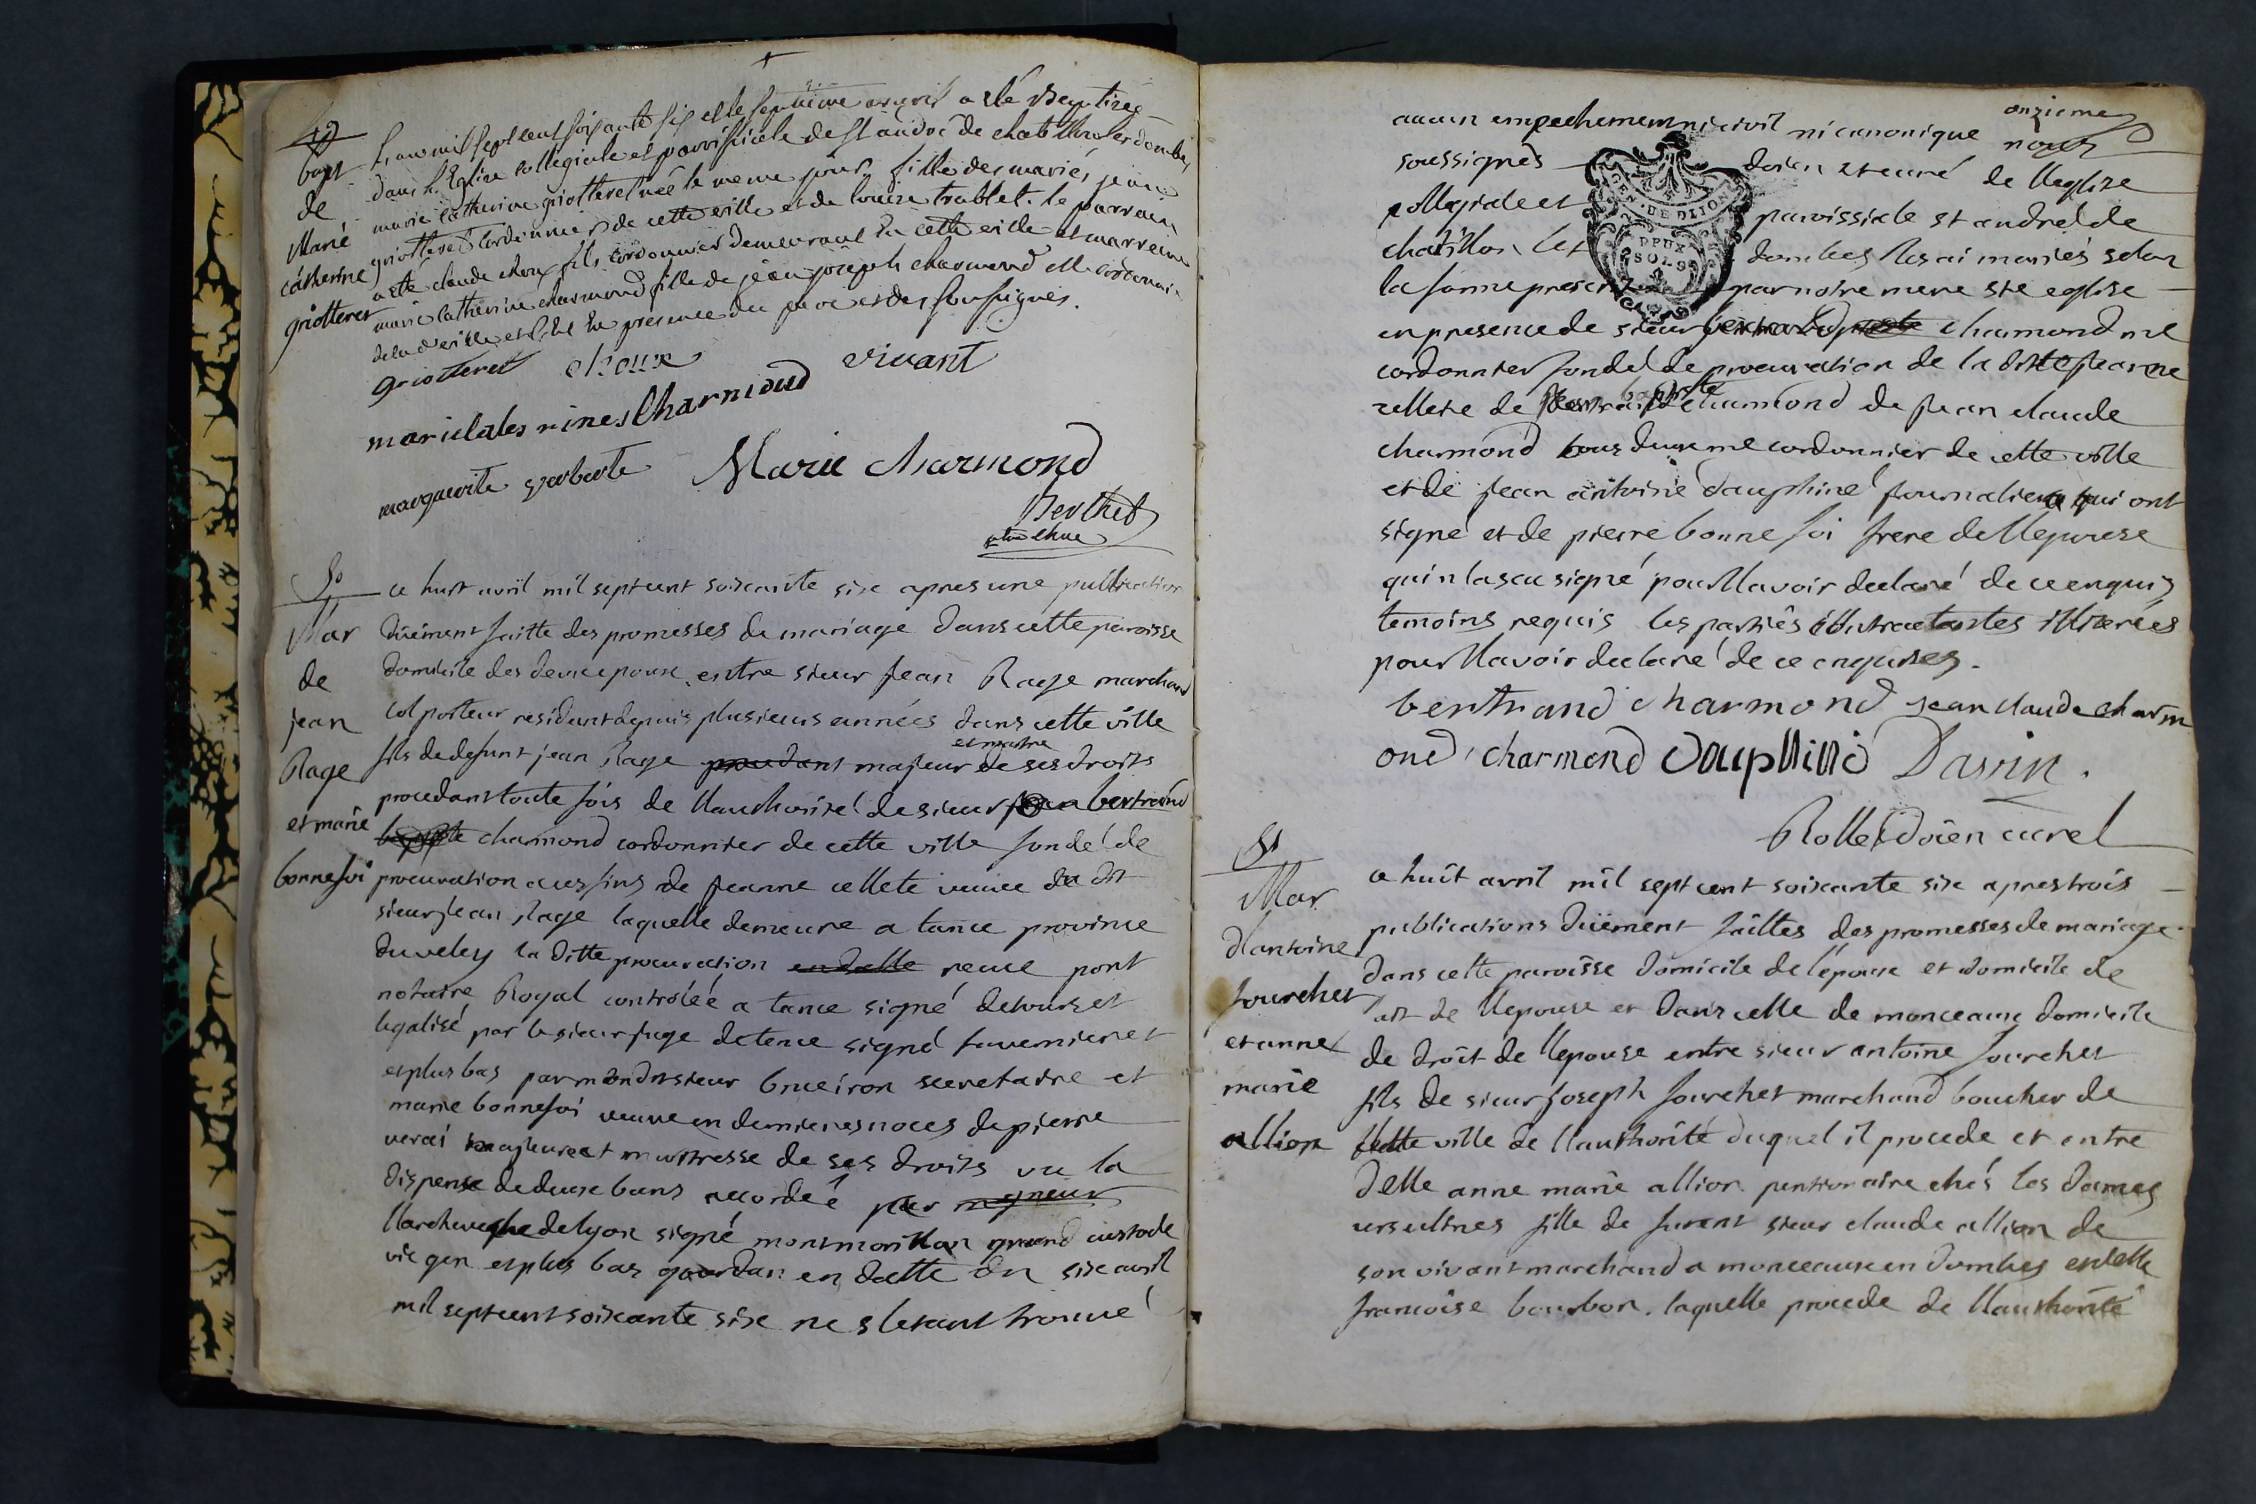 49
bapt
de
Marie
catherine
griotteret
L'an mil sept cent soixante six et le septième avril a été Baptizée
dans l'Eglise collégiale et paroissiale de st andré de chatillon les dombes
marie catherine griotteret née le meme jour, fille des mariés jean
griotteret cordonnier de cette ville et de louise trablet. le parrain
a été claude choux fils cordonnier demeurant en cette ville et marreine
marie catherine charmond fille de jean joseph charmond
de la d ville et en presence du pere et des soussignés.
griotteret choux vivant
marie cates rines Charmond
marguerite
Marie charmond
Berthet
50
Mar
de
jean
Rage
et marie
bonnefoi
ce huit avril mil sept cent soixante six apres une publication
düement faitte des promesses de mariage dans cette paroisse
domicile des deux epoux, entre sieur jean Rage marchand
colporteur residant depuis plusieurs années dans cette ville
fils de defunt jean Rage procedant majeur et maitre de ses droits
procedant toute fois de llauthorité de sieur bertrand
charmond cordonnier de cette ville fondé de
procuration aux fins de jeanne cellete veuve du dit
sieur jean Rage laquelle demeure a tance province
du veley la ditte procuration reçue pont
notaire Royal controlée a tance signé detours et
legalisé par le sieur juge de tence signé fauvernier et
et plus bas par mondit sieur brueiron secretaire et
marie bonnefoi veuve en dernieres noces de pierre
verai majeure et maitresse de ses droits vu la
dispense de deux bans accordée par
llarcheveque de lyon signé montmorillon grand custode
vic gen et plus bas gourdan en datte du six avril
mil sept cent soixante six ne s'etant trouvé
onzieme
aucun empechement ni civil ni canonique nous
soussignés doien et curé de lleglise
collegiale et paroissiale st andré de
chatillon les dombes les ai mariés selon
la forme prescrite par notre mere ste eglise
en presence de sieur bertrand charmond me
cordonnier fondé de procuration de la ditte jeanne
cellete de jean baptiste charmond de jean claude
charmond tous deux me cordonnier de cette ville
et de jean antoine dauphiné journalier qui ont
signé et de pierre bonnefoi frere de llepouse
qui n'a scu signé pour llavoir declaré de ce enquis
temoins requis les partiês contractantes illiterées
pour llavoir declaré de ce enquises.
bertrand charmond jean claude charm
ond charmond Dauphiné Davin.
Rollet doien curé
GEN. DE DIJON
DEUX
SOLS
51
Mar
dantoine
fourchet
et anne
marie
allion
ce huit avril mil sept cent soixante six apres trois
publications düement faittes des promesses de mariage
dans cette paroisse domicile de l'epoux et domicile de
fait de llepouse et dans celle de monceaux domicile
de droit de llepouse entre sieur antoine fourchet
fils de sieur joseph fourchet marchand boucher de
cette ville de llauthorité duquel il procede et entre
delle anne marie allion pentionaire chés les dames
ursulines fille de furent sieur claude allion de
son vivant marchand a monceaux en dombes et delle
francoise bourbon. laquelle procede de llauthorité